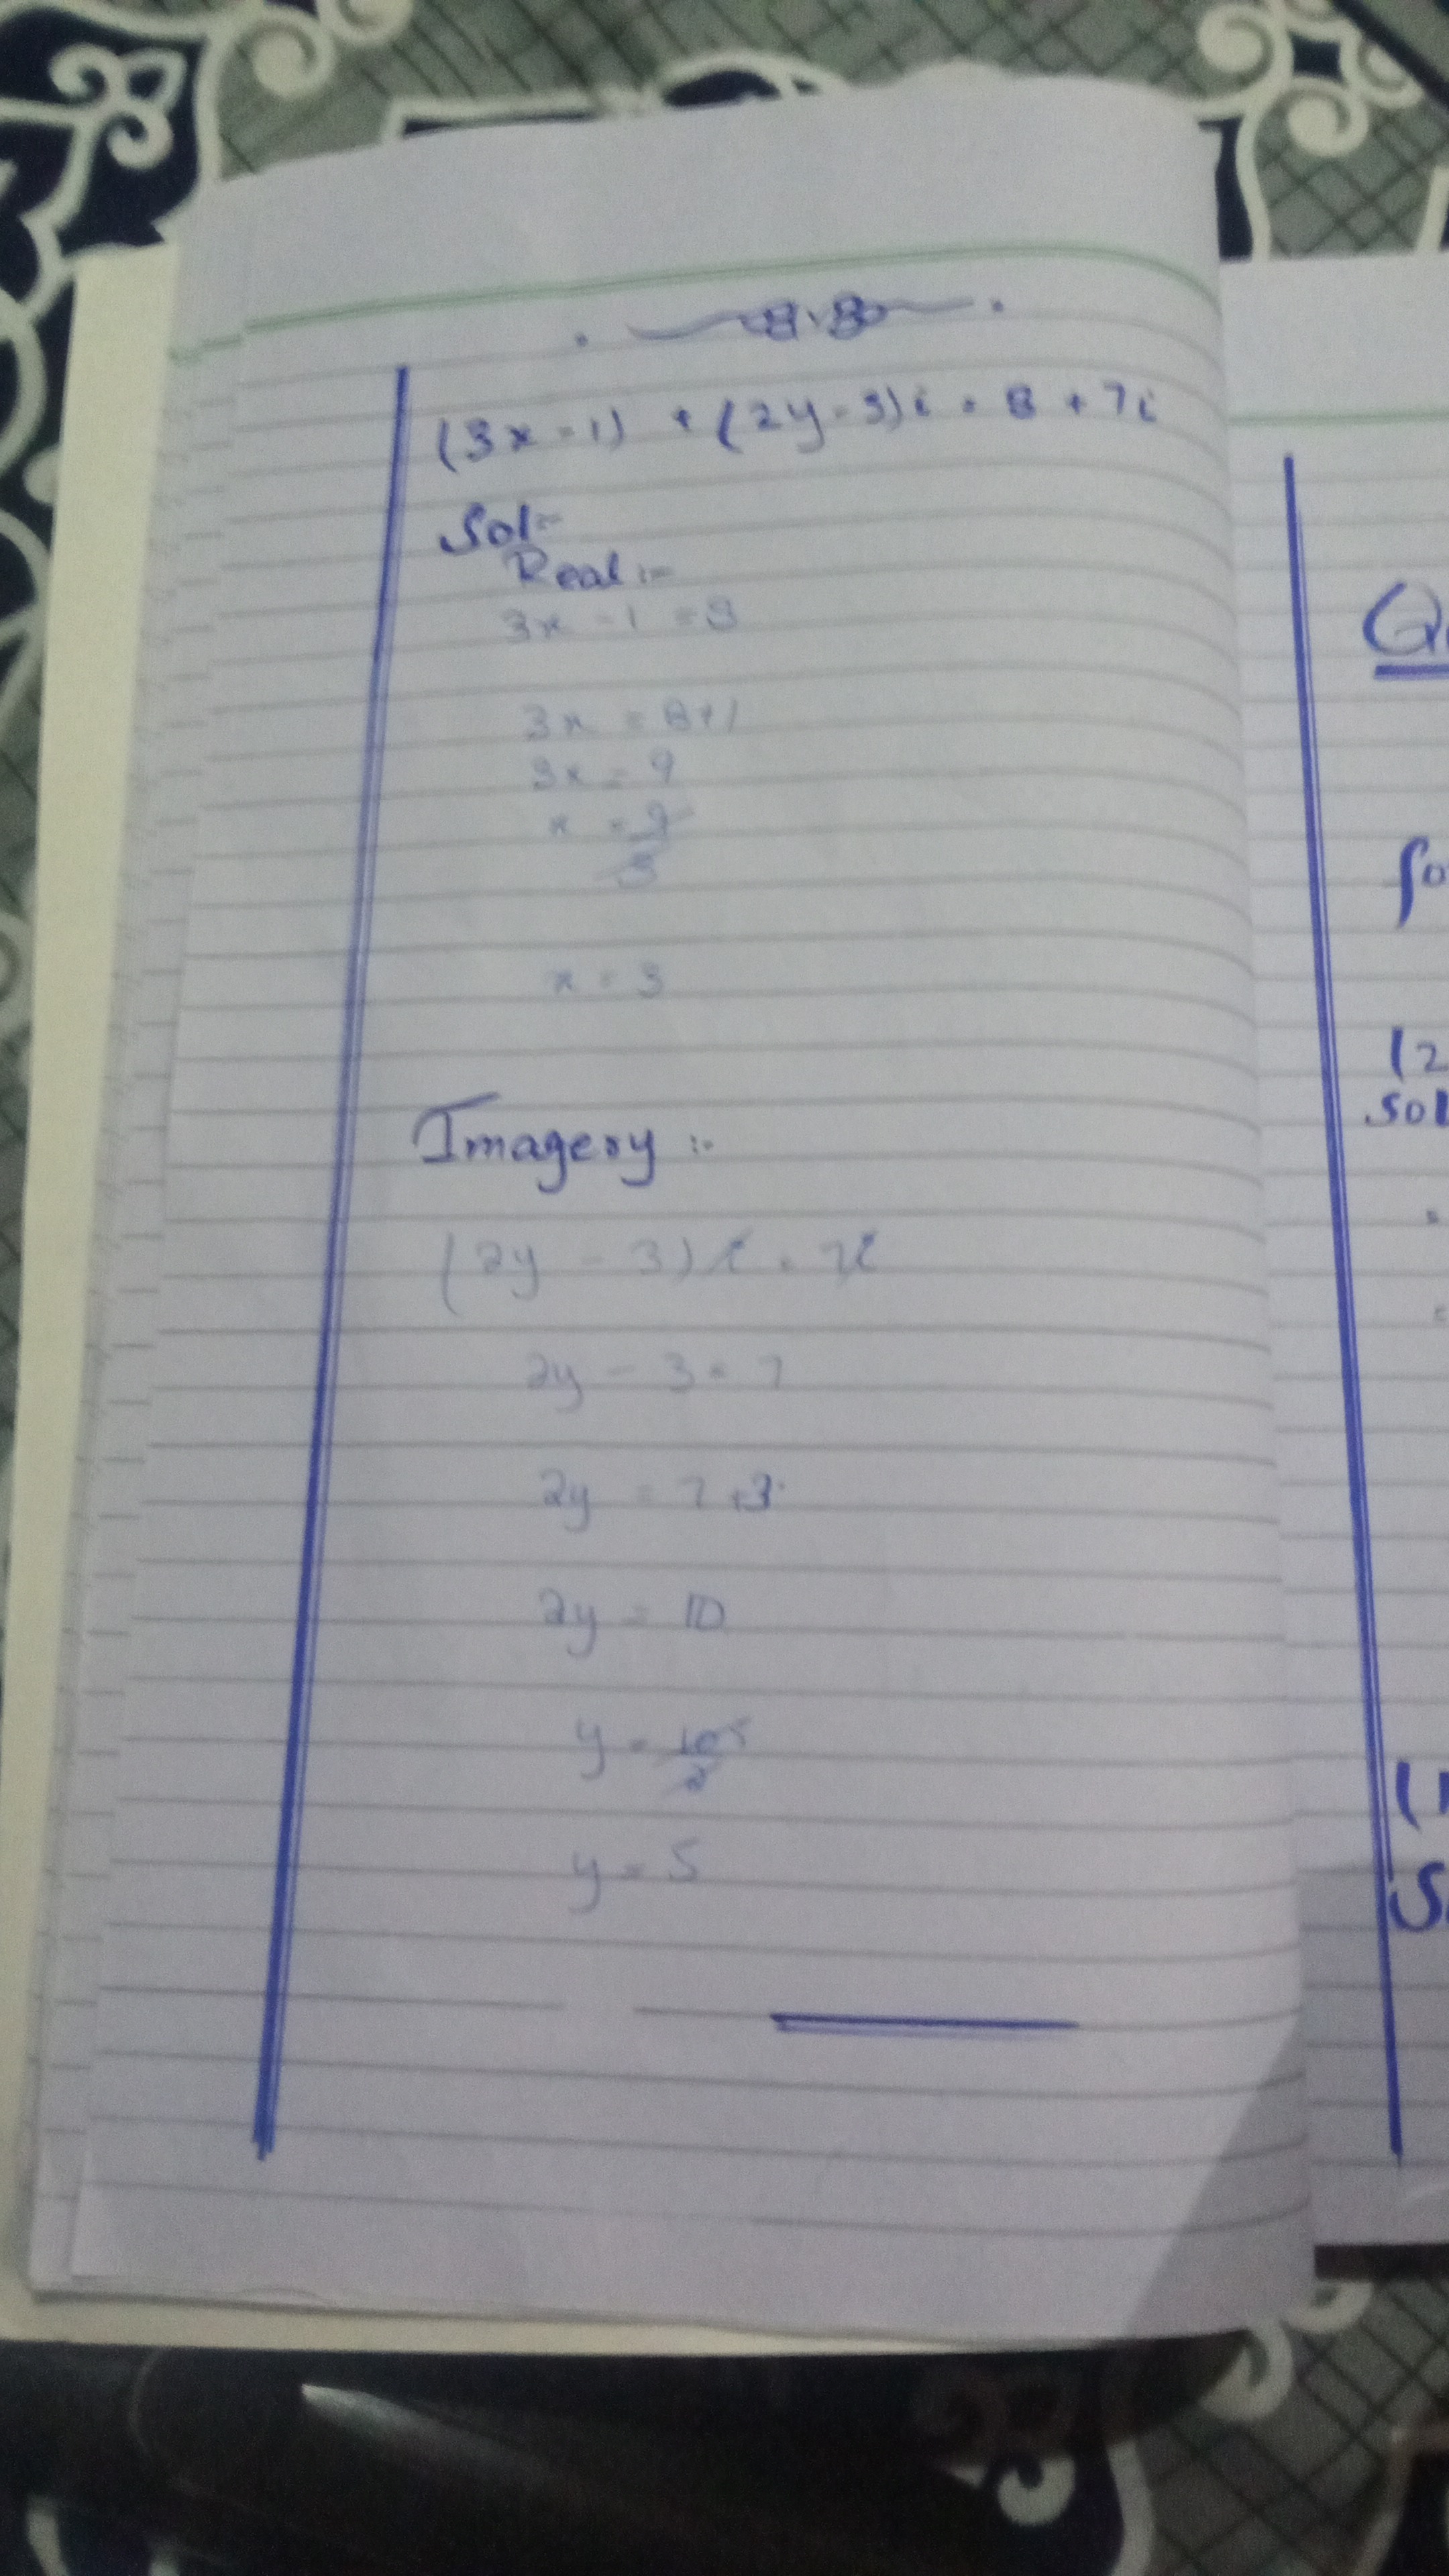 (3x-1) + (2y-3)i = 8 + 7i
Sol:-
Real :-
3x - 1 = 8
3x = 8+1
3x = 9
x = 9
3
x = 3
Imagery :-
(2y - 3)i = 7i
2y - 3 = 7
2y = 7+3
2y = 10
y = 10 5
2
y = 5
(2
Sol